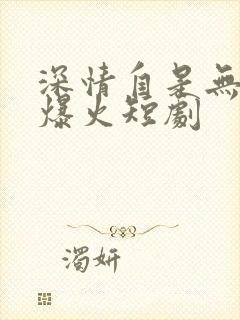 深情自是無
爆火短劇
濁妍